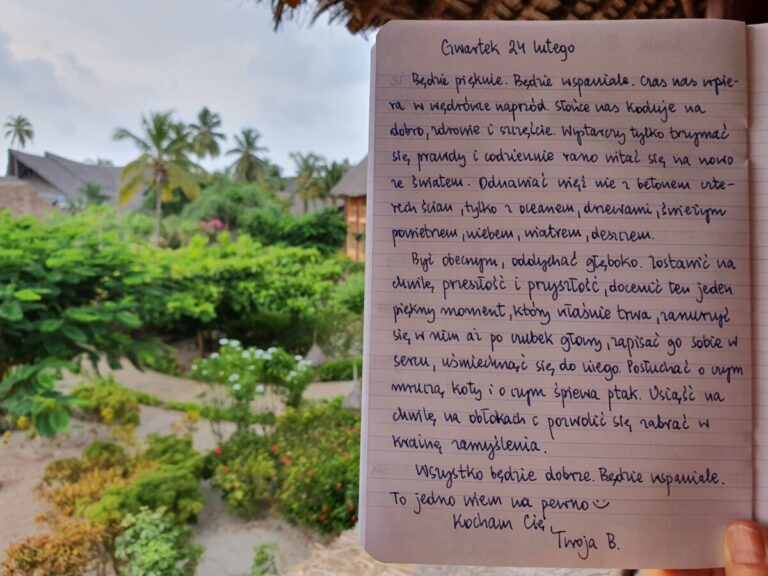 Czwartek 24 lutego
Będzie pięknie. Będzie wspaniale. Czas nas wpie-
ra w wędrówce naprzód. Słońce nas koduje na
dobro, zdrowie i szczęście. Wystarczy tylko trzymać
się prawdy i codziennie rano witać się na nowo
ze światem. Odnawiać więź nie z betonem czte-
rech ścian, tylko z oceanem, drzewami, świeżym
powietrzem, niebem, wiatrem, deszczem.
Być obecnym, oddychać głęboko. Zostawić na
chwilę, przeszłość i przyszłość, docenić ten jeden
piękny moment, który właśnie trwa, zanurzyć
się w nim aż po czubek głowy, zapisać go sobie w
sercu, uśmiechnąć się do niego. Posłuchać o czym
mruczą koty i o czym śpiewa ptak. Usiąść na
chwilę na obłokach i pozwolić się zabrać w
krainę zamyślenia.
Wszystko będzie dobrze. Będzie wspaniale.
To jedno wiem na pewno
Kocham Cię,
Twoja B.